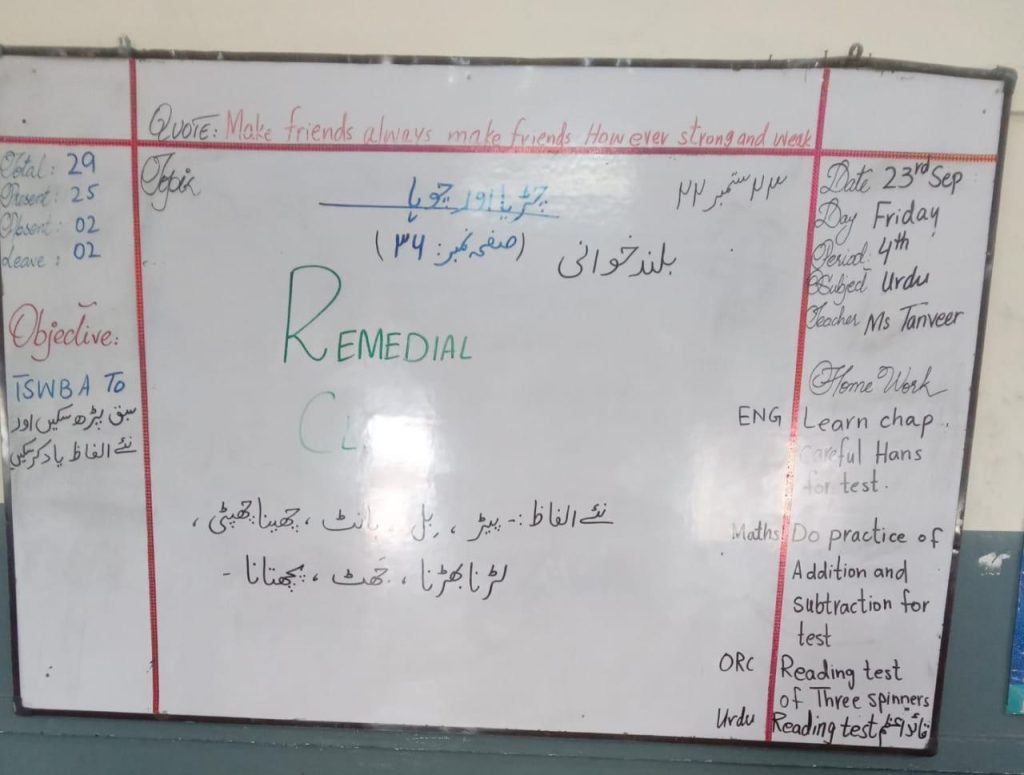 QUOTE: Make friends always make friends However strong and weak
Total: 29
Present: 25
Absent: 02
Leave: 02
Objective:
TSWBA To
سبق پڑھ سکیں اور
نئے الفاظ یاد کر سکیں
Topic
۲۳ ستمبر ۲۲
چڑیا اور چوہا
(صفحہ نمبر: ۳۶)
بلند خوانی
REMEDIAL
CL
نئے الفاظ :- پیڑ ، بِل ، بانٹ ، چھینا چھپٹی ،
لڑنا بھڑنا ، جَھٹ ، پچھتانا -
Date 23rd Sep
Day Friday
Period: 4th
Subject Urdu
Teacher Ms Tanveer
Home Work
ENG Learn chap.
Careful Hans
for test.
Maths Do practice of
Addition and
subtraction for
test
ORC Reading test
of Three spinners
Urdu Reading test قائد اعظم